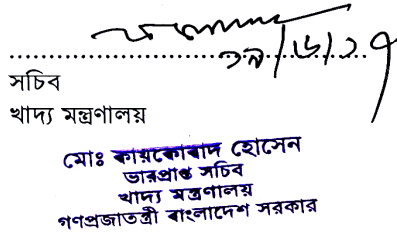 ১৯/৬/১৭
সচিব
খাদ্য মন্ত্রণালয়
মোঃ কায়কোবাদ হোসেন
ভারপ্রাপ্ত সচিব
খাদ্য মন্ত্রণালয়
গণপ্রজাতন্ত্রী বাংলাদেশ সরকার